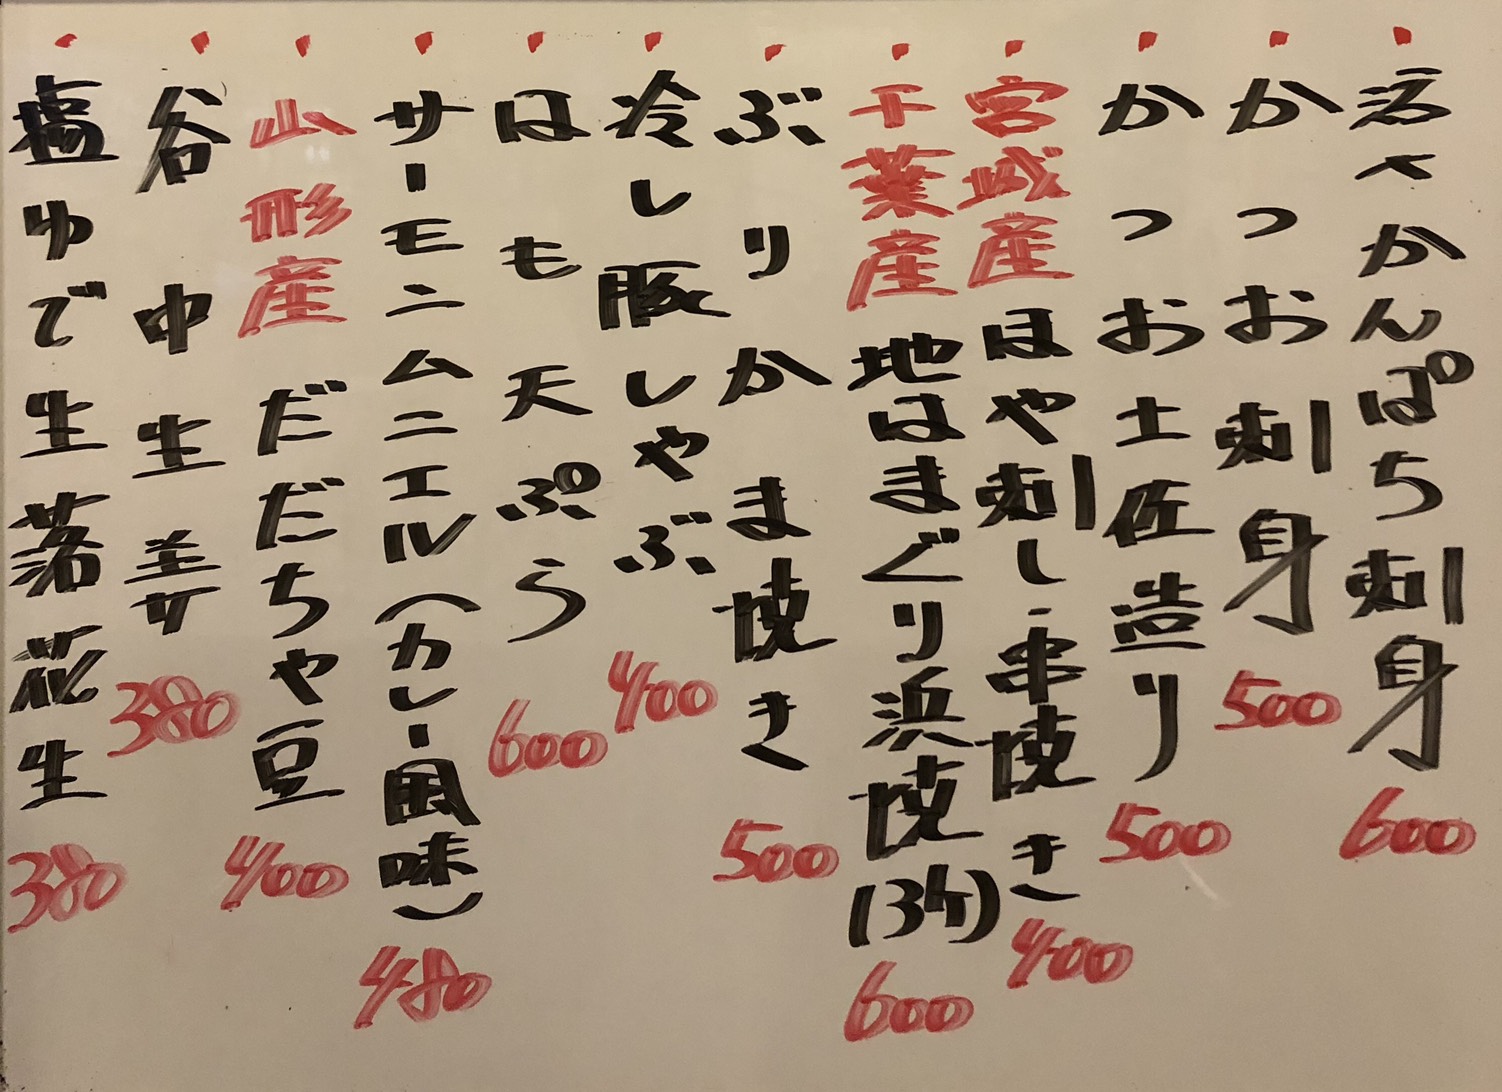 活〆かんぱち刺身 600
かつお刺身 500
かつお土佐造り 500
宮城産ほや刺し・串焼き 400
千葉産地はまぐり浜焼(3ケ) 600
ぶりかま焼き 500
冷し豚しゃぶ 400
はも天ぷら 600
サーモンムニエル(カレー風味) 480
山形産だだちゃ豆 400
谷中生姜 380
塩ゆで生落花生 380